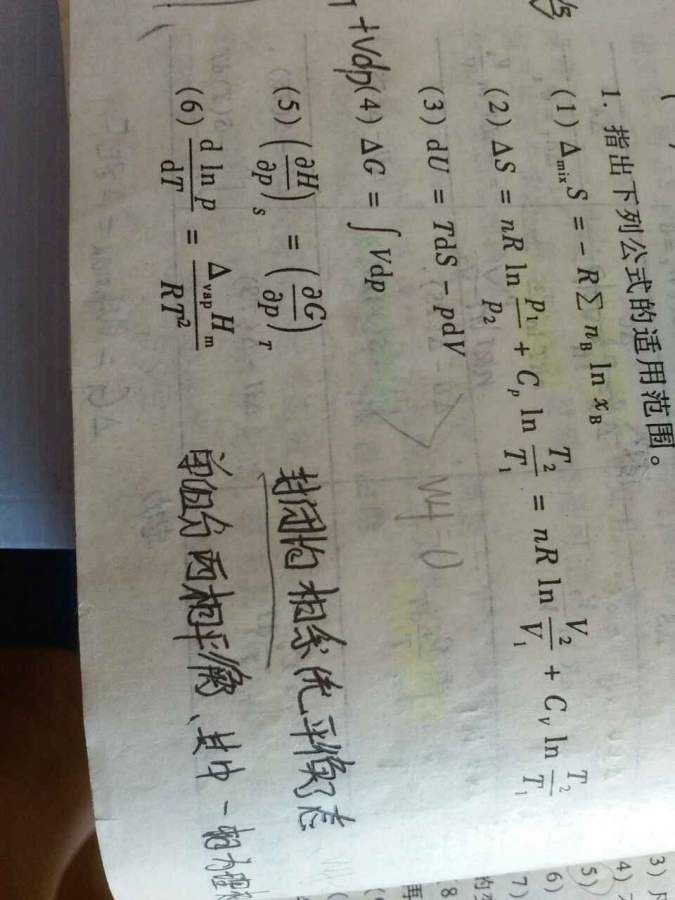 1. 指出下列公式的适用范围。
(1) Δ_mix S = − R ∑ n_B ln x_B
(2) ΔS = nR ln p₁/p₂ + C_p ln T₂/T₁ = nR ln V₂/V₁ + C_V ln T₂/T₁
(3) dU = TdS − pdV
W_f=0
+Vdp
(4) ΔG = ∫ Vdp
(5) (∂H/∂p)_S = (∂G/∂p)_T
封闭均相系统平衡态
(6) d ln p/dT = Δ_vap H_m/RT²
单组分两相平衡、其中一相为理
3)
4)
5)
6)
7)